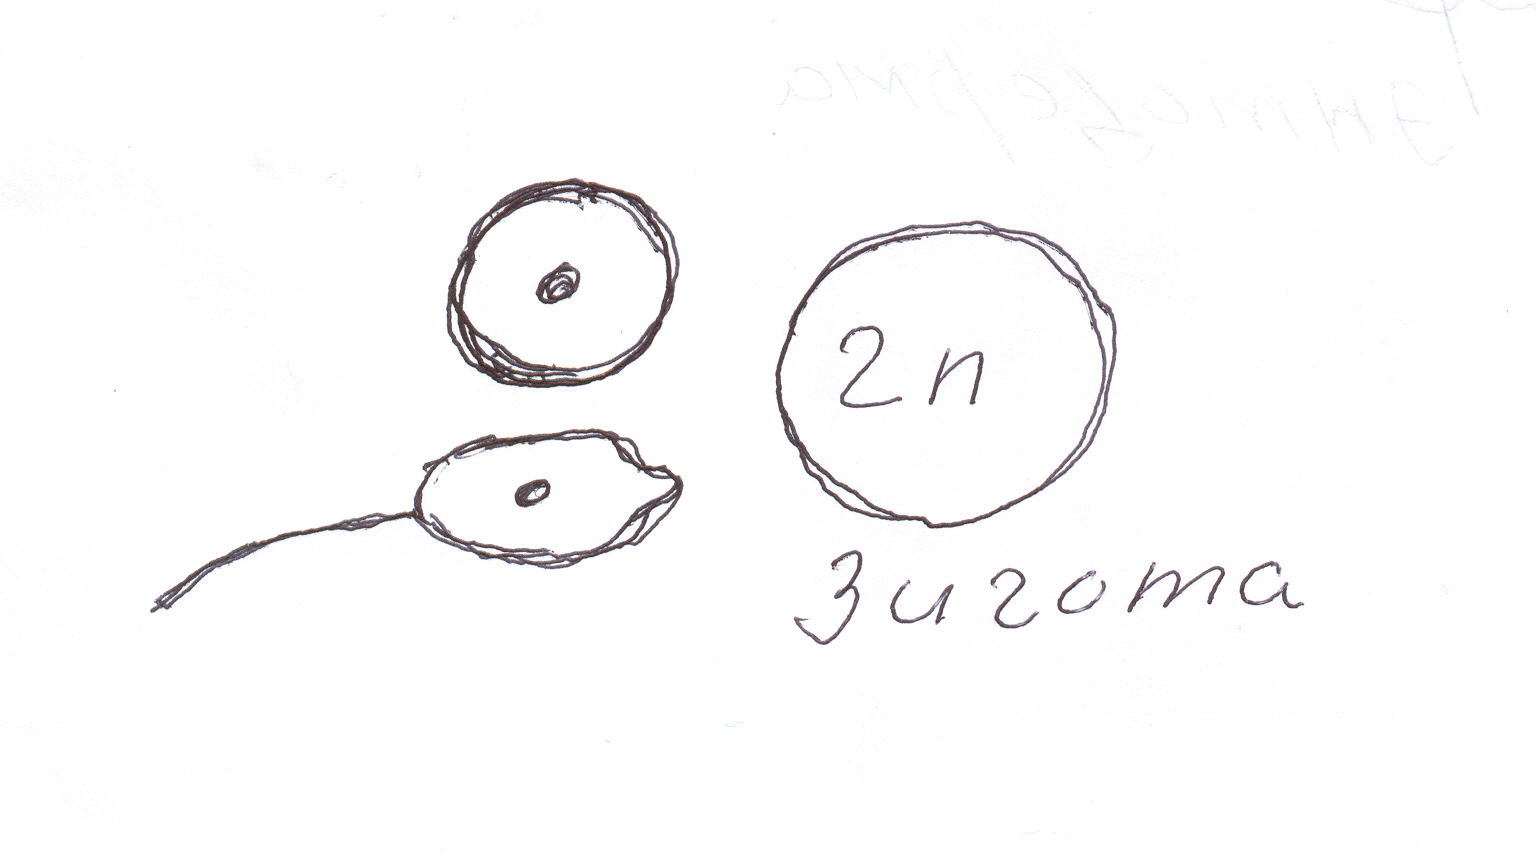 2n
Зигота